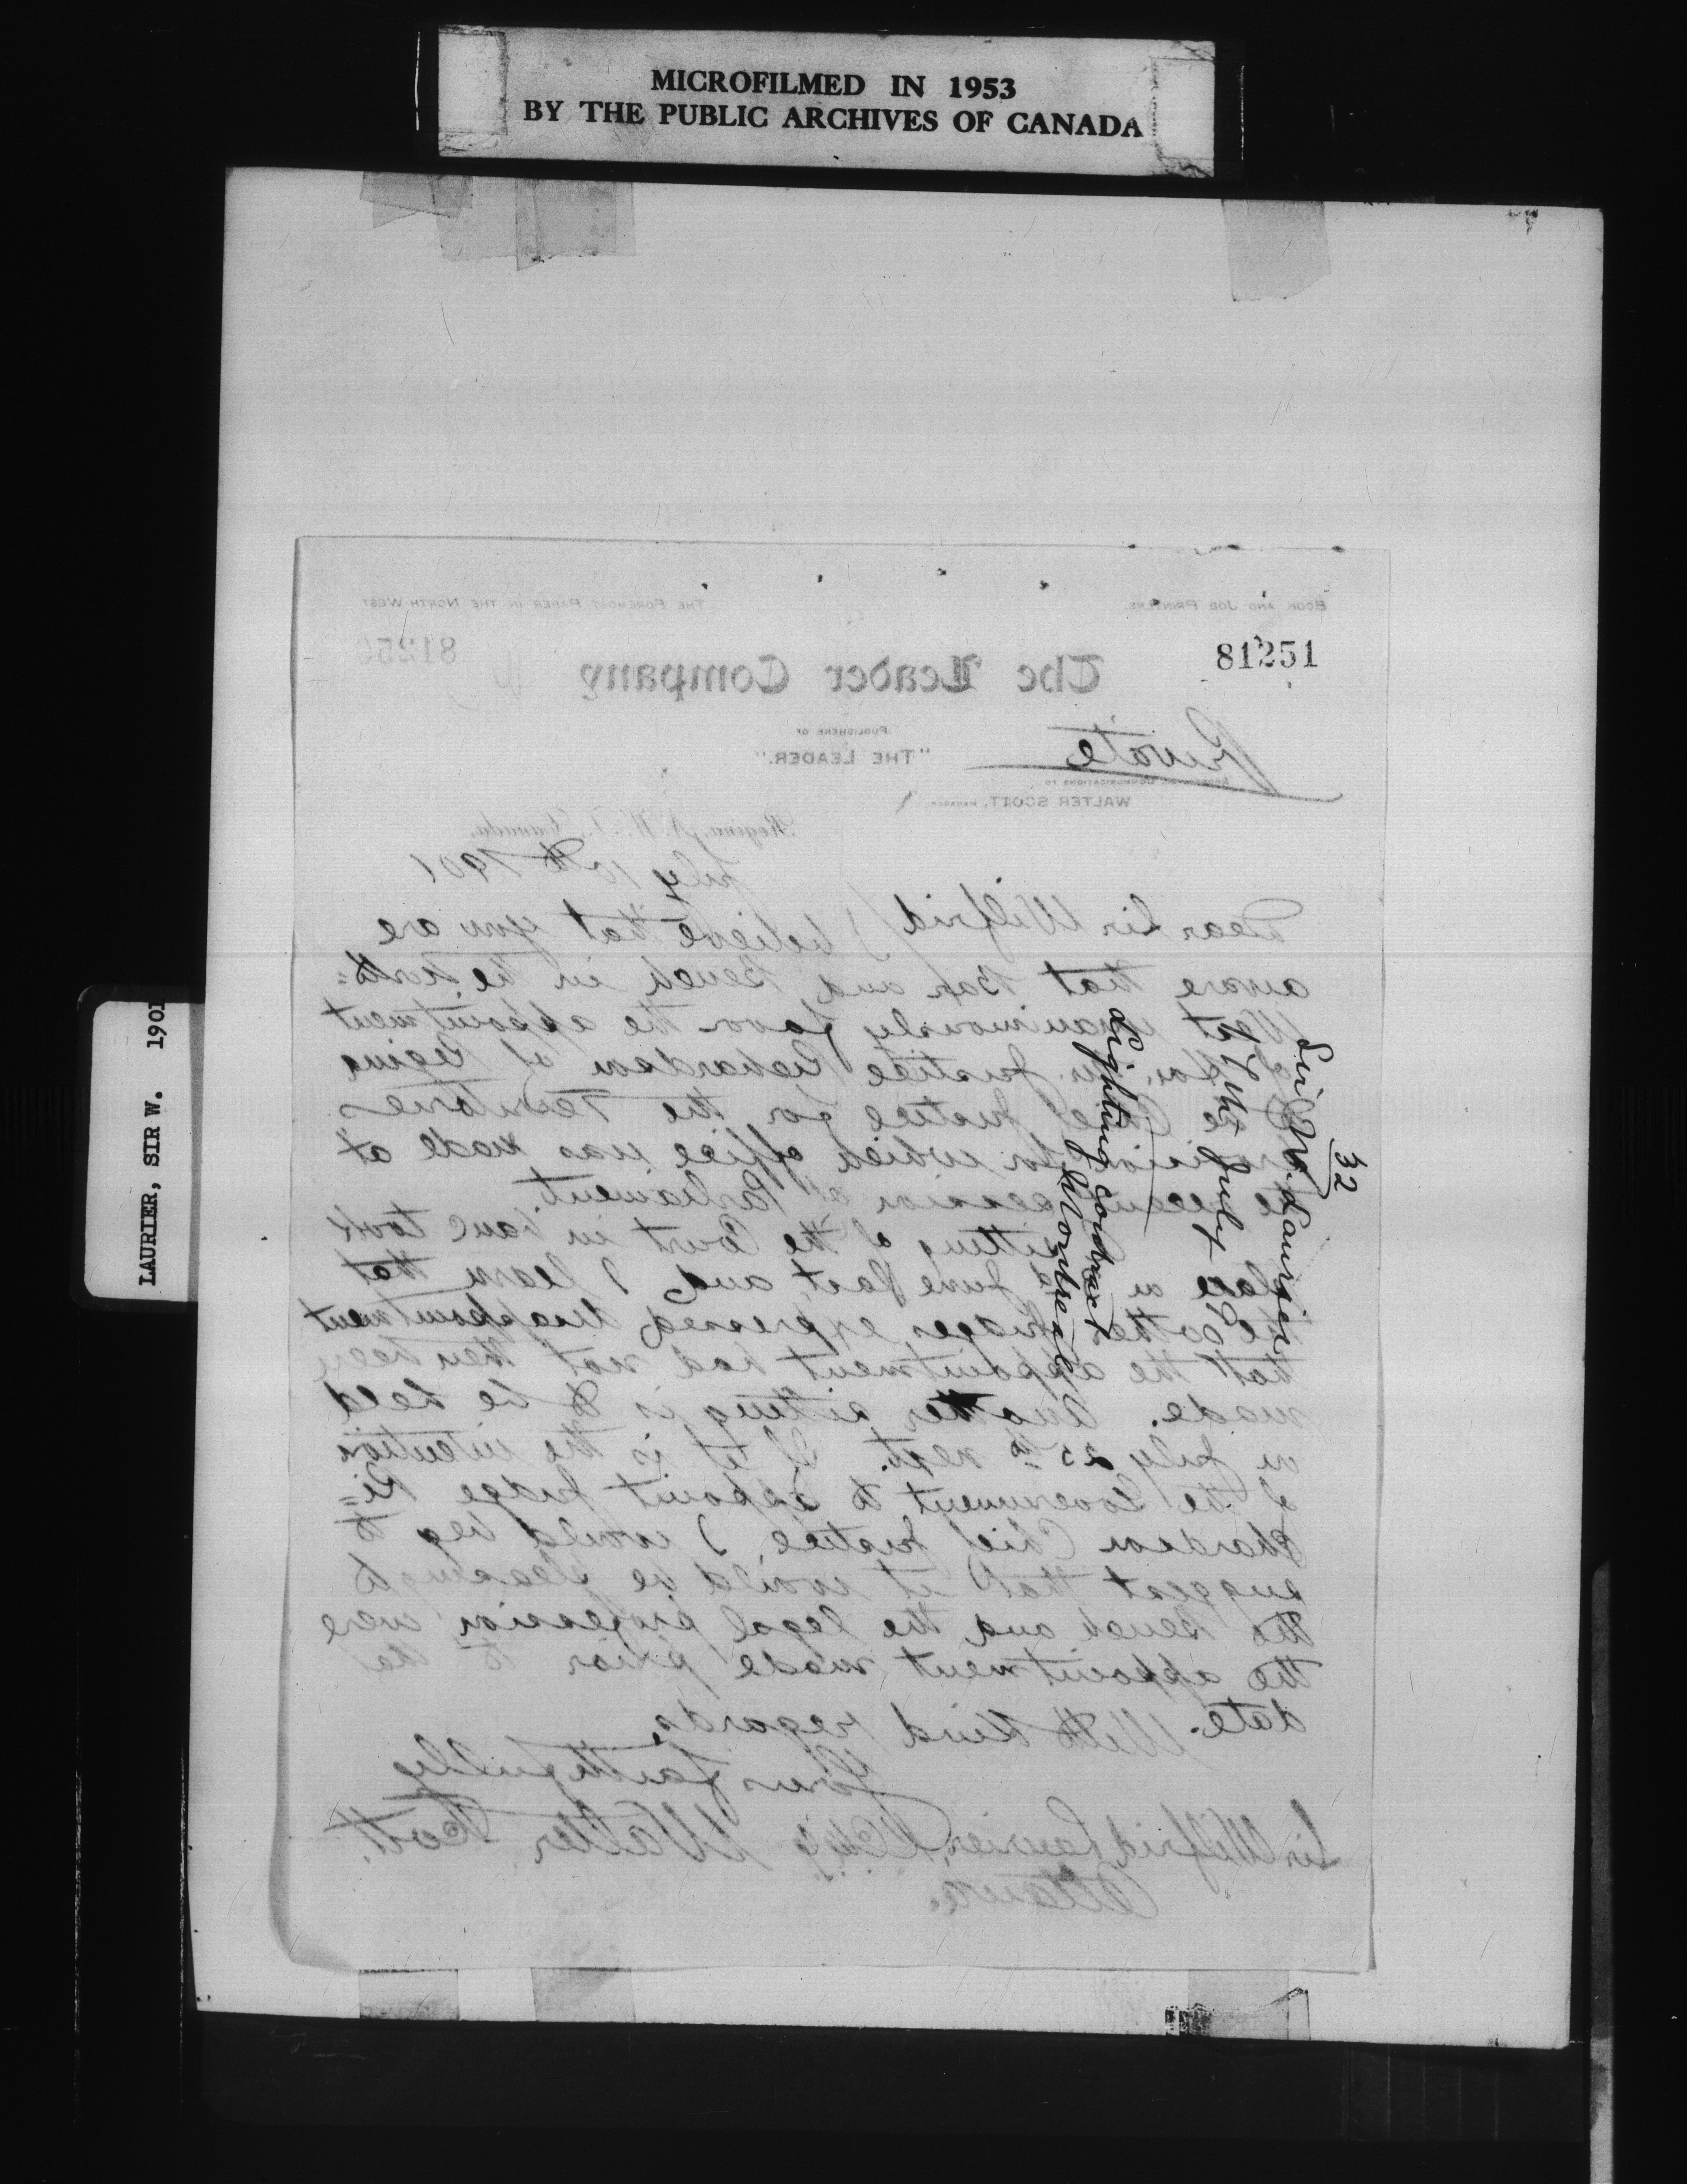 MICROFILMED IN 1953
BY THE PUBLIC ARCHIVES OF CANADA
LAURIER, SIR W. 1901
BOOK AND JOB PRINTERS.
THE FOREMOST PAPER IN THE NORTH-WEST
81251
81250
The Leader Company
PUBLISHERS OF
"THE LEADER."
Private
ADDRESS COMMUNICATIONS TO
WALTER SCOTT, MANAGER.
Regina, N.W.T., Canada,
July 10th 1901
Dear Sir Wilfrid
I believe that you are
aware that Bar and Bench in the North=
West unanimously favor the appointment
of Hon. Mr. Justice Richardson of Regina
to be Chief Justice for the Territories
provision for which office was made at
the recent session of Parliament.
A sitting of the Court in banc took
place in June last, and I learn that
the other Judges expressed disappointment
that the appointment had not then been
made. Another sitting is to be held
on July 25th next. If it is the intention
of the Government to appoint Judge Ri=
chardson Chief Justice, I would beg to
suggest that it would be pleasing to
the Bench and the legal profession were
the appointment made prior to that
date.
With kind regards,
Yours faithfully
Walter Scott.
Sir Wilfrid Laurier,
Ottawa.
32
Sir W. Laurier
July
Lighting contract
Montreal